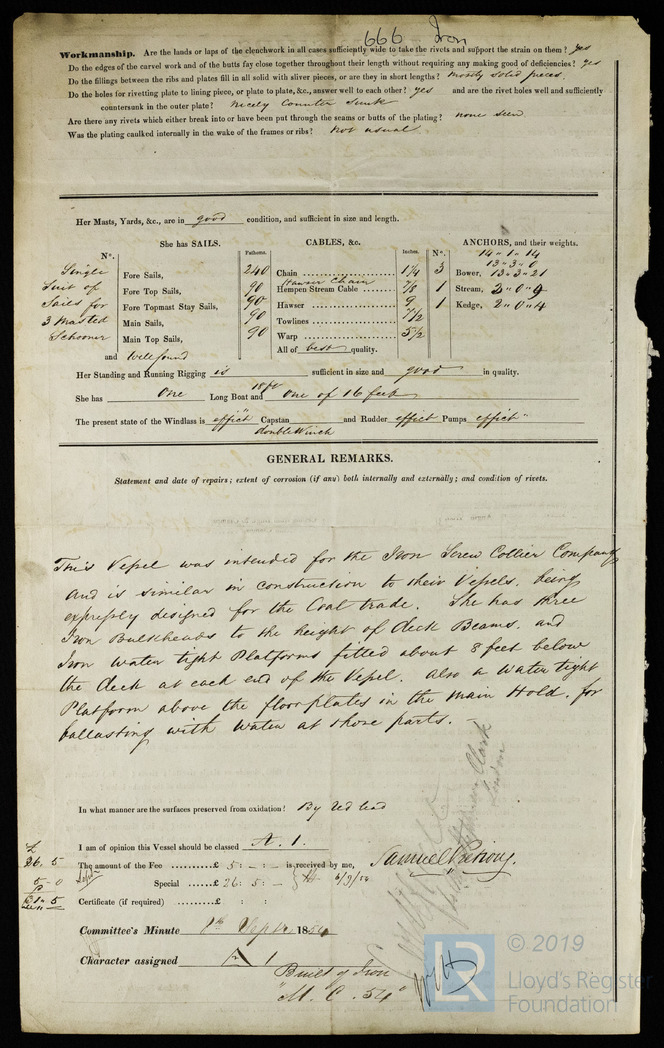 666 Iron
Workmanship. Are the lands or laps of the clenchwork in all cases sufficiently wide to take the rivets and support the strain on them? yes
Do the edges of the carvel work and of the butts fay close together throughout their length without requiring any making good of deficiencies? yes
Do the fillings between the ribs and plates fill in all solid with sliver pieces, or are they in short lengths? mostly solid pieces.
Do the holes for rivetting plate to lining piece, or plate to plate, &c., answer well to each other? yes and are the rivet holes well and sufficiently
countersunk in the outer plate? nicely Counter Sunk
Are there any rivets which either break into or have been put through the seams or butts of the plating? none seen
Was the plating caulked internally in the wake of the frames or ribs? not usual
Her Masts, Yards, &c., are in good condition, and sufficient in size and length.
She has SAILS. CABLES, &c. ANCHORS, and their weights.
N°. Fathoms. Inches. N°.
Single Suit of Sails for 3 Masted Schooner
Fore Sails,
Fore Top Sails,
Fore Topmast Stay Sails,
Main Sails,
Main Top Sails,
and Well found
240 Chain 1 1/4
90 Hawser Chain Hempen Stream Cable 7/8
90 Hawser 9
90 Towlines 7 1/2
90 Warp 5 1/2
All of best quality.
14 " 1 " 14
13 " 3 " 0
3 Bower, 13 " 3 " 21
1 Stream, 3 " 0 " 9
1 Kedge, 2 " 0 " 4
Her Standing and Running Rigging is sufficient in size and good in quality.
She has One 18 ft Long Boat and One of 16 feet
The present state of the Windlass is effict Capstan double Winch and Rudder effict Pumps effict
GENERAL REMARKS.
Statement and date of repairs; extent of corrosion (if any) both internally and externally; and condition of rivets.
This Vessel was intended for the Iron Screw Collier Company
and is similar in construction to their Vessels. being
expressly designed for the Coal trade. She has three
Iron Bulkheads to the height of deck Beams. and
Iron water tight Platforms fitted about 8 feet below
the deck at each end of the Vessel. also a water tight
Platform above the floorplates in the Main Hold. for
ballasting with water at those parts.
In what manner are the surfaces preserved from oxidation? By red lead
I am of opinion this Vessel should be classed A. 1.
£
26. 5
5 - 0
£31 " 5
The amount of the Fee £ 5 : - : - is received by me,
Special £ 26 : 5 : -
Certificate (if required) £ : :
Samuel
Clark
London
Committee's Minute 8th Septr 1854
Character assigned A 1
Built of Iron
"M. C. 54"
LR
© 2019
Lloyd's Register
Foundation